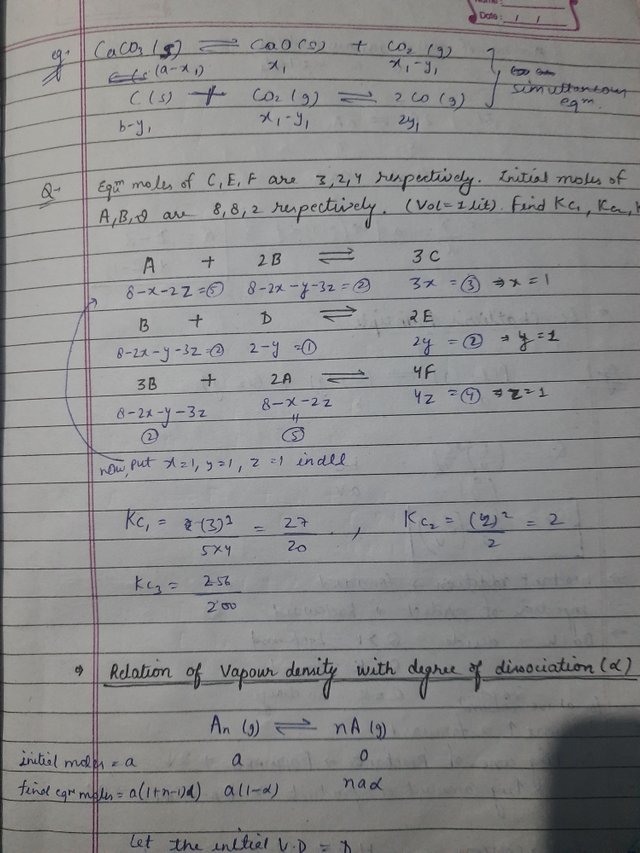 Date: / /
eg. CaCO3 (s) ⇌ CaO(s) + CO2 (g)
(a-x1) x1 x1-y1
simultaneous eqm
C(s) + CO2 (g) ⇌ 2CO (g)
b-y1 x1-y1 2y1
Q- Eqm moles of C, E, F are 3, 2, 4 respectively. Initial moles of
A, B, D are 8, 8, 2 respectively. (Vol=1 lit). Find Kc1, Kc2,
A + 2B ⇌ 3C
8-x-2z = 5 8-2x-y-3z = 2 3x = 3 ⇒ x = 1
B + D ⇌ 2E
8-2x-y-3z = 2 2-y = 1 2y = 2 ⇒ y = 1
3B + 2A ⇌ 4F
8-2x-y-3z 8-x-2z 4z = 4 ⇒ z = 1
2 5
now, put x=1, y=1, z=1 in all
Kc1 = (3)3 / 5×4 = 27 / 20 , Kc2 = (2)2 / 2 = 2
Kc3 = 256 / 200
Relation of Vapour density with degree of dissociation (α)
An (g) ⇌ nA (g)
initial moles = a a 0
final eqm moles = a(1+n-1)α) a(1-α) naα
Let the initial V.D = D